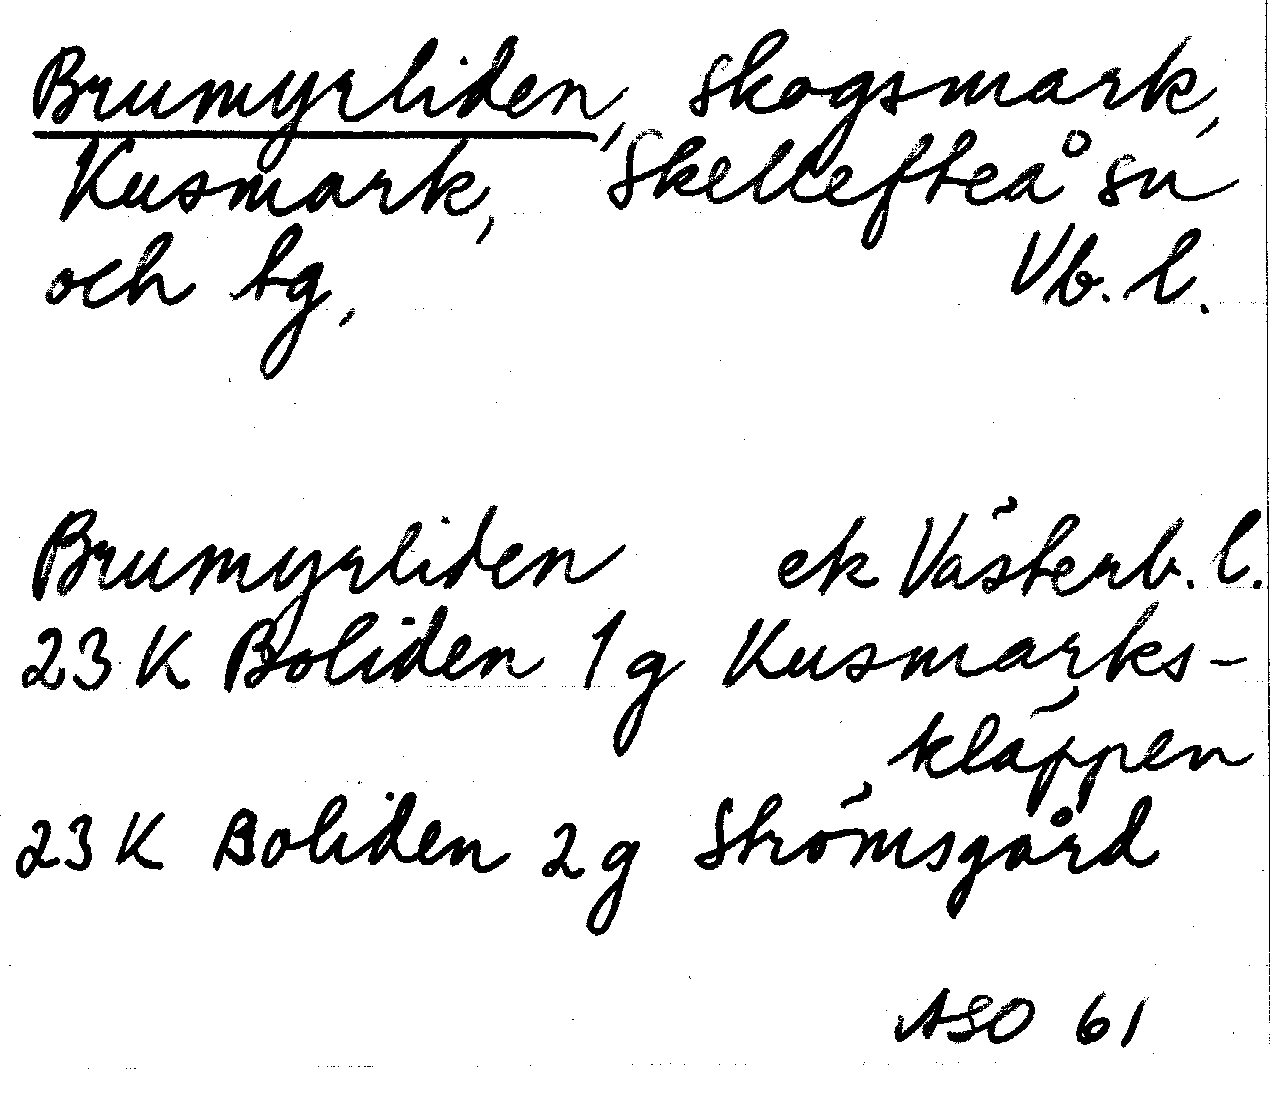 Brumyrliden, skogsmark,
Kusmark, Skellefteå sn
och tg, Vb. l.
Brumyrliden ek Västerb. l.
23 K Boliden 1 g Kusmarks-
kläppen
23 K Boliden 2 g Strömsgård
ASO 61